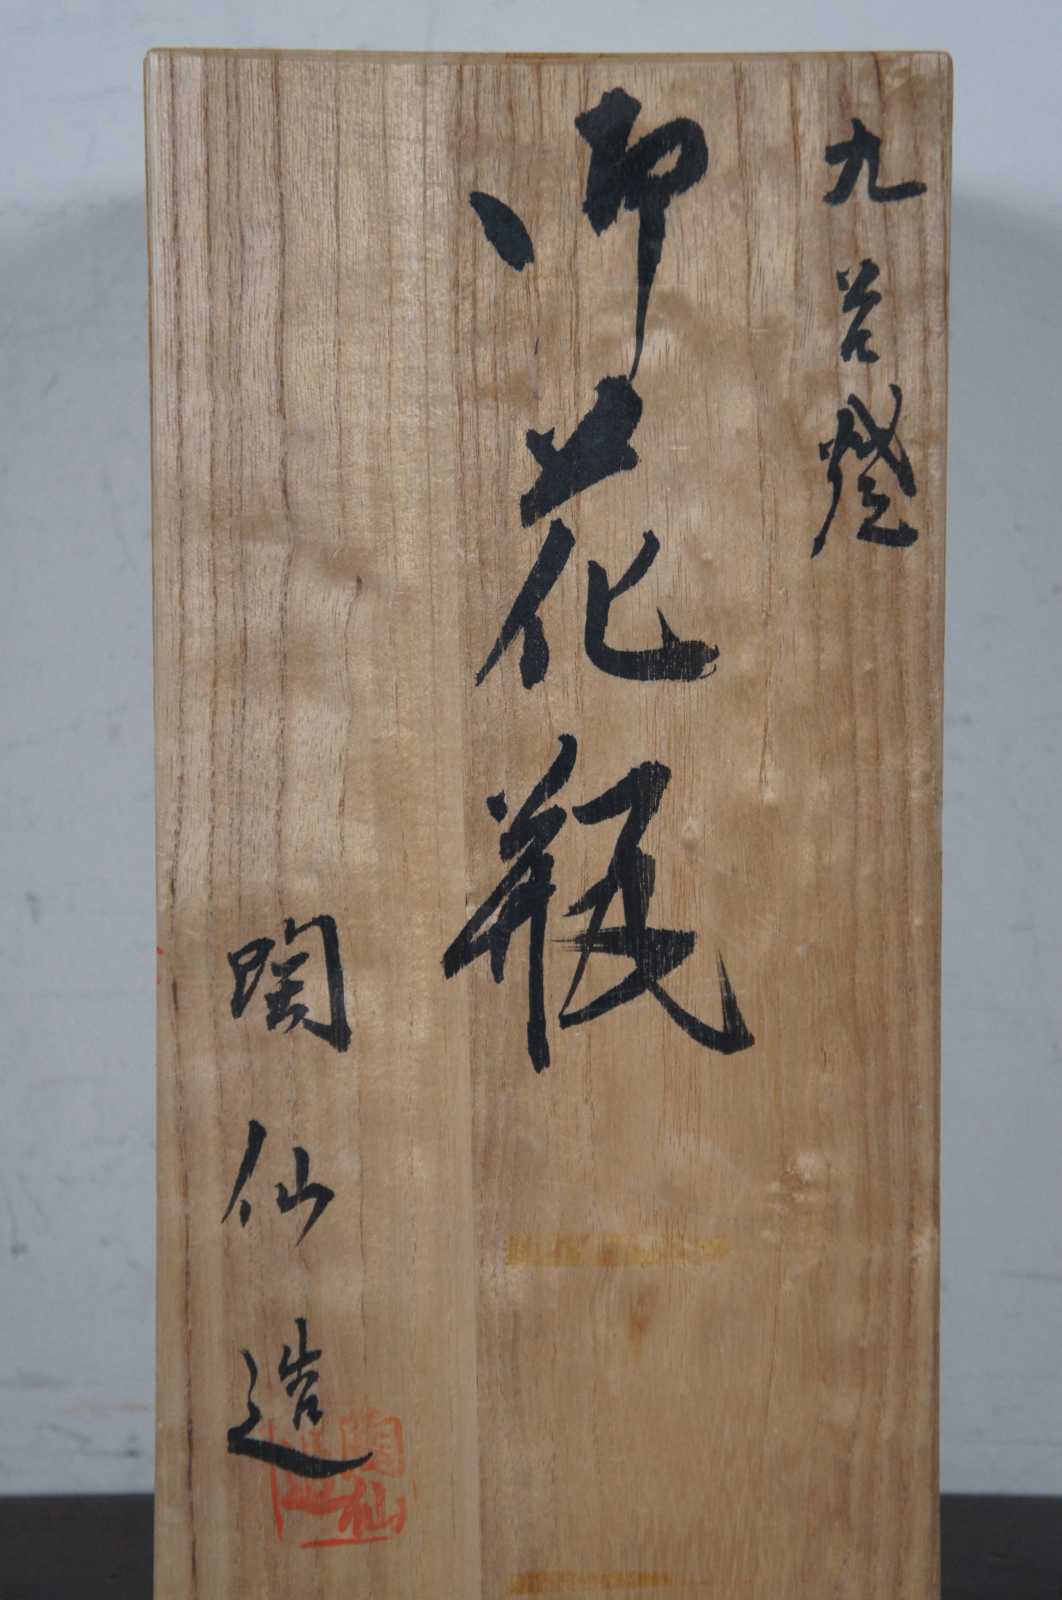 九谷燈
御花瓶
陶仙造
陶仙造